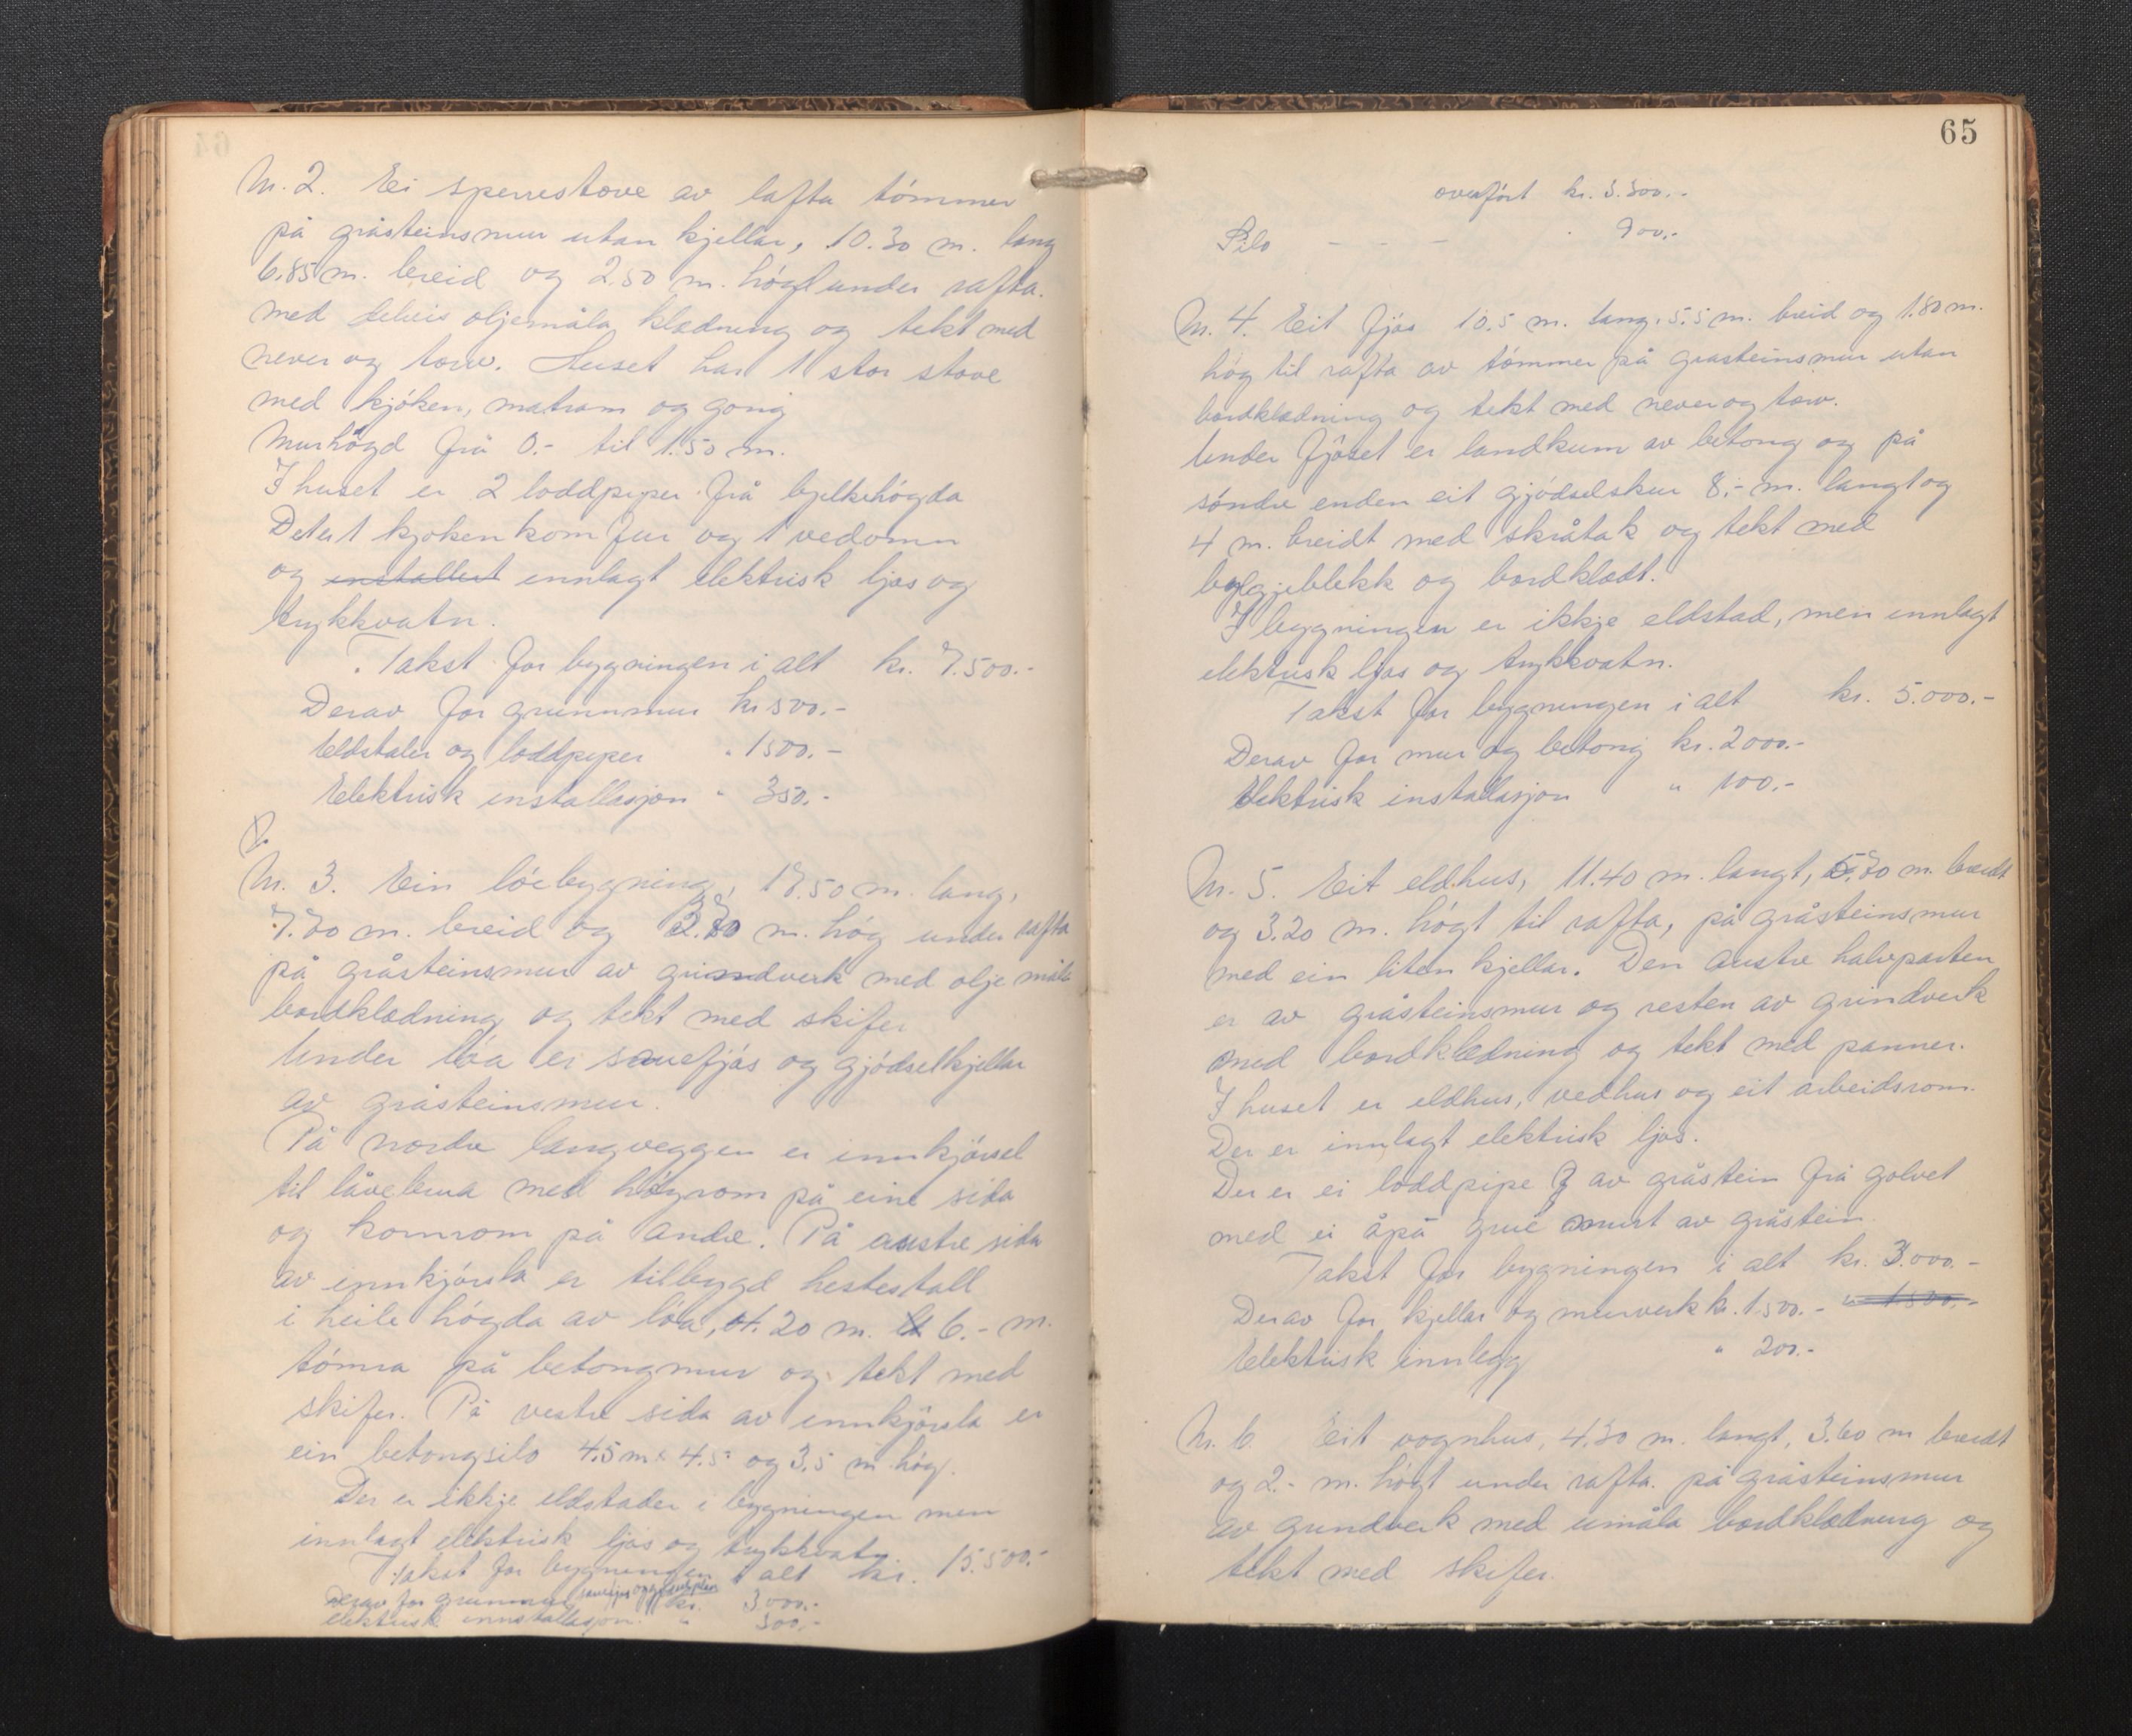 N. 2. Ei sperrestove av lafta tømmer
på gråsteinsmur utan kjellar, 10.30 m. lang
6.85 m. breid og 2.50 m. høgt under rafta.
med delvis oljemåla klædning og tekt med
never og torv. Huset har 1 stor stove
med kjøken, matrom og gong
Murhøgd frå 0.- til 1.50 m.
I huset er 2 loddpiper frå bjelkehøgda
Det er 1 kjøkenkomfur og 1 vedomn
og installert innlagt elektrisk ljos og
trykkvatn.
Takst for bygningen i alt kr. 7.500.-
Derav for grunnmur kr 500.-
Eldstader og loddpiper " 1500.-
Elektrisk installasjon " 350.-
N. 3. Ein løebygning, 17.50 m. lang,
7.70 m. breid og m. høg under rafta
på gråsteinsmur av grindverk med olje måla
bordklædning og tekt med skifer
Under løa er sauefjøs og gjødselkjellar
av gråsteinsmur.
På nordre langveggen er innkjørsel
til låvebrua med høyrom på eine sida
og kornrom på andre. På austre sida
av innkjørsla er tilbygd hestestall
i heile høgda av løa, 4.20 m. 6.- m.
tømra på betongmur og tekt med
skifer. På vestre sida av innkjørsla er
ein betongsilo 4.5 m x 4.5 og 3.5 m høg.
Der er ikkje eldstader i bygningen men
innlagt elektrisk ljos og trykkvatn.
Takst for bygningen i alt kr. 15.500.-
Derav for grunnmur sauefjøs og kr. 3000.-
elektrisk innstallasjon. " 300.-
65
overført kr. 3.300.-
Silo - - - 900.-
N. 4. Eit fjøs 10.5 m. lang, 5.5 m. breid og 1.80 m.
høg til rafta av tømmer på grasteinsmur utan
bordklædning og tekt med never og torv.
Under fjøset er landkum av betong og på
søndre enden eit gjødselskur 8.- m. langt og
4 m. breidt med skråtak og tekt med
bylgjeblekk og bordklædt.
I bygningen er ikkje eldstad, men innlagt
elektrisk ljos og trykkvatn.
Takst for bygningen i alt kr. 5.000.-
Derav for mur og betong kr. 2000.-
Elektrisk installasjon " 100.-
N. 5. Eit eldhus, 11.40 m. langt, 5.70 m. breidt
og 3.20 m. høgt til rafta, på gråsteinsmur
med ein liten kjellar. Den austre halvparten
er av gråsteinsmur og resten av grindverk
med bordklædning og tekt med panner.
I huset er eldhus, vedhus og eit arbeidsrom.
Der er innlagt elektrisk ljos.
Der er ei loddpipe av gråstein frå golvet
med ei åpå grue murt av gråstein
Takst for bygningen i alt kr. 3.000.-
Derav for kjellar og murverk kr. 1.500.- " 1.500.-
Elektrisk innlegg " 200.-
N. 6. Eit vognhus, 4.30 m. langt, 3.60 m breidt
og 2.- m. høgt under rafta. på gråsteinsmur
av grindverk med umåla bordklædning og
tekt med skifer.